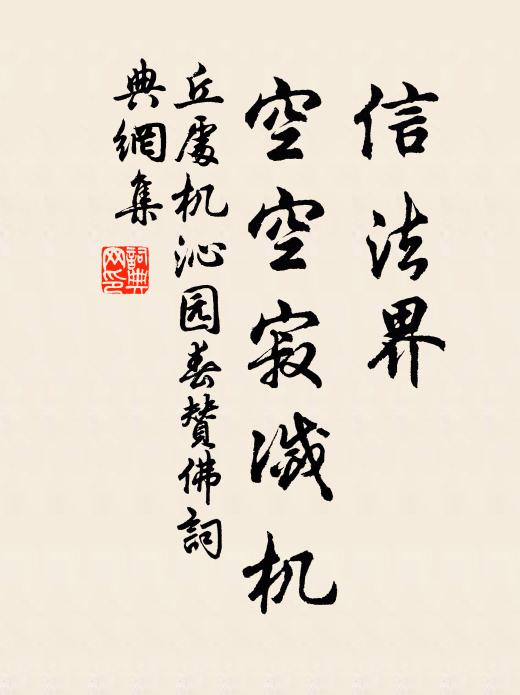 信法界
空空寂滅机
丘處机沁园春赞佛詞
典網集
詞典网印